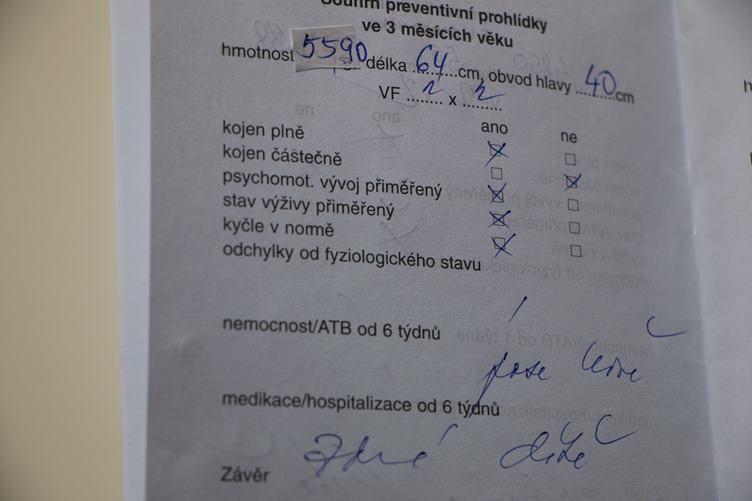 Souhrn preventivní prohlídky
ve 3 měsících věku
hmotnost 5590 délka 64 cm, obvod hlavy 40 cm
VF 2 x 2
ano ne
kojen plně
kojen částečně
psychomot. vývoj přiměřený
stav výživy přiměřený
kyčle v normě
odchylky od fyziologického stavu
nemocnost/ATB od 6 týdnů
medikace/hospitalizace od 6 týdnů
Závěr Zdravé dítě